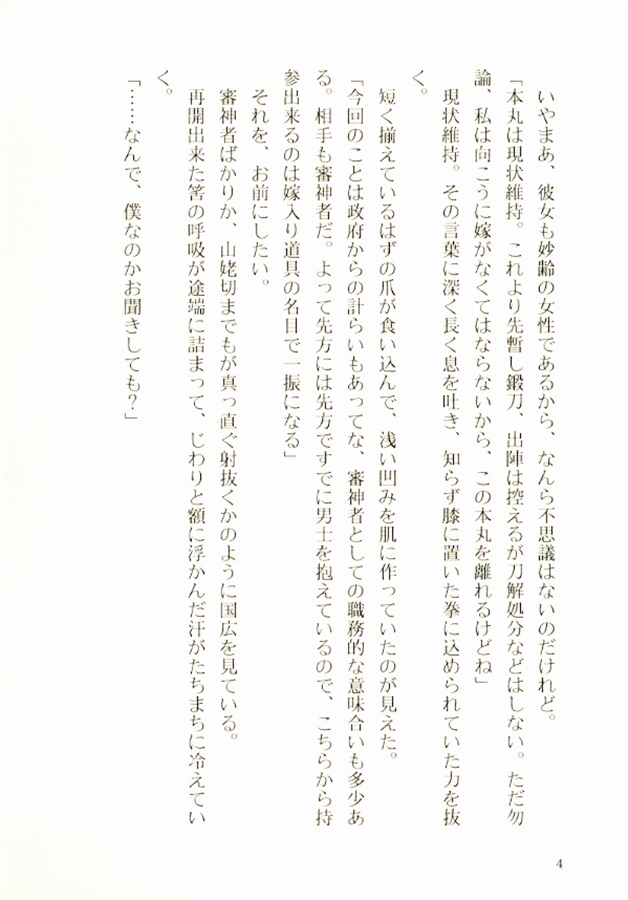 いやまあ、彼女も妙齢の女性であるから、なんら不思議はないのだけれど。
「本丸は現状維持。これより先暫し鍛刀、出陣は控えるが刀解処分などはしない。ただ勿
論、私は向こうに嫁がなくてはならないから、この本丸を離れるけどね」
現状維持。その言葉に深く長く息を吐き、知らず膝に置いた拳に込められていた力を抜
く。
短く揃えているはずの爪が食い込んで、浅い凹みを肌に作っていたのが見えた。
「今回のことは政府からの計らいもあってな、審神者としての職務的な意味合いも多少あ
る。相手も審神者だ。よって先方には先方ですでに男士を抱えているので、こちらから持
参出来るのは嫁入り道具の名目で一振になる」
それを、お前にしたい。
審神者ばかりか、山姥切までもが真っ直ぐ射抜くかのように国広を見ている。
再開出来た筈の呼吸が途端に詰まって、じわりと額に浮かんだ汗がたちまちに冷えてい
く。
「……なんで、僕なのかお聞きしても？」
4